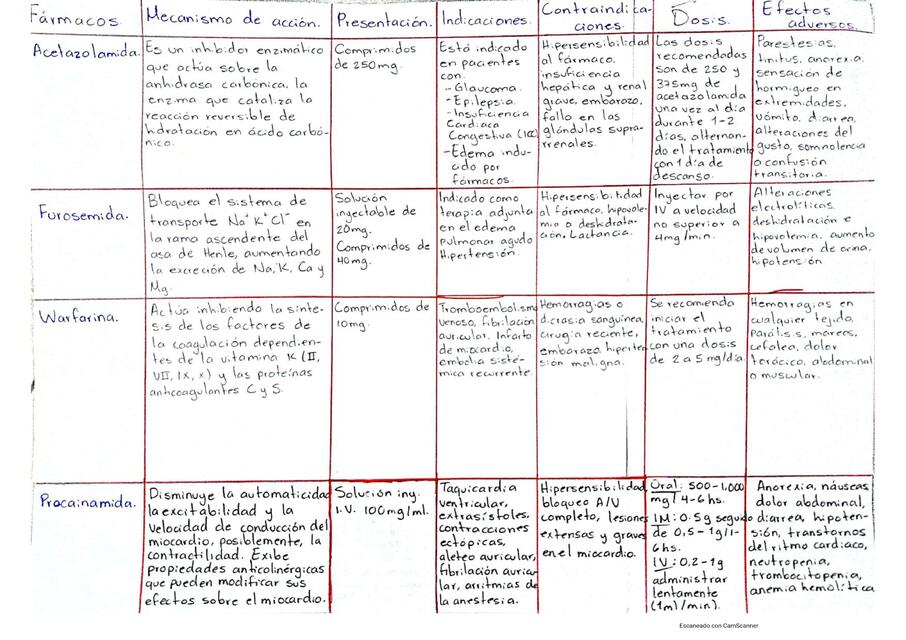 Fármacos. Mecanismo de acción. Presentación. Indicaciones. Contraindicaciones. Dosis. Efectos adversos.
Acetazolamida.
Es un inhibidor enzimático
que actúa sobre la
anhidrasa carbónica, la
enzima que cataliza la
reacción reversible de
hidratación en ácido carbó-
nico.
Comprimidos
de 250mg.
Está indicado
en pacientes
con:
-Glaucoma.
-Epilepsia.
-Insuficiencia
Cardiaca
Congestiva (ICC)
-Edema indu-
cido por
fármacos.
Hipersensibilidad
al fármaco,
insuficiencia
hepática y renal
grave, embarazo,
fallo en las
glándulas supra-
rrenales.
Las dosis
recomendadas
son de 250 y
375mg de
acetazolamida
una vez al día
durante 1-2
días, alternan-
do el tratamiento
con 1 día de
descanso.
Parestesias,
tinitus, anorexia,
sensación de
hormigueo en
extremidades,
vómito, diarrea,
alteraciones del
gusto, somnolencia
o confusión
transitoria.
Furosemida.
Bloquea el sistema de
transporte Na⁺ K⁺ Cl⁻ en
la rama ascendente del
asa de Henle, aumentando
la excreción de Na, K, Ca y
Mg.
Solución
inyectable de
20mg.
Comprimidos de
40mg.
Indicado como
terapia adjunta
en el edema
pulmonar agudo
Hipertensión.
Hipersensibilidad
al fármaco, hipovole-
mia o deshidrata-
ción, Lactancia.
Inyectar por
IV a velocidad
no superior a
4mg/min.
Alteraciones
electrolíticas,
deshidratación e
hipovolemia, aumento
de volumen de orina,
hipotensión
Warfarina.
Actúa inhibiendo la sínte-
sis de los factores de
la coagulación dependien-
tes de la vitamina K (II,
VII, IX, X) y las proteínas
anticoagulantes C y S.
Comprimidos de
10mg.
Tromboembolismo
venoso, fibrilación
auricular, Infarto
de miocardio,
embolia sisté-
mica recurrente.
Hemorragias o
dicrasia sanguínea,
cirugía reciente,
embarazo, hiperten-
sión maligna.
Se recomienda
iniciar el
tratamiento
con una dosis
de 2 a 5mg/día.
Hemorragias en
cualquier tejido,
parálisis, mareos,
cefalea, dolor
torácico, abdominal
o muscular.
Procainamida.
Disminuye la automaticidad
la excitabilidad y la
velocidad de conducción del
miocardio, posiblemente, la
contractilidad. Exibe
propiedades anticolinérgicas
que pueden modificar sus
efectos sobre el miocardio.
Solución iny.
I.V. 100mg/ml.
Taquicardia
ventricular,
extrasístoles,
contracciones
ectópicas,
aleteo auricular,
fibrilación auricu-
lar, arritmias de
la anestesia.
Hipersensibilidad
bloqueo A/V
completo, lesiones
extensas y graves
en el miocardio.
Oral: 500-1,000
mg/4-6hs.
IM: 0.5g seguido
de 0,5-1g/1-
6hs.
IV: 0,2-1g
administrar
lentamente
(1ml/min).
Anorexia, náuseas
dolor abdominal,
diarrea, hipoten-
sión, transtornos
del ritmo cardiaco,
neutropenia,
trombocitopenia,
anemia hemolítica
Escaneado con CamScanner